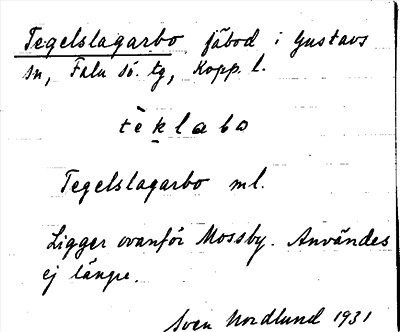 Tegelslagarbo fäbod i Gustavs
sn, Falu sö. tg, Kopp. l.
tèklabo
Tegelslagarbo ml.
Ligger ovanför Mossby. Användes
ej längre.
Sven Nordlund 1931